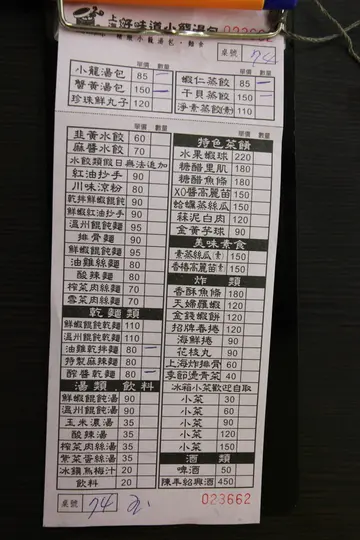 上海好味道小籠湯包 023662
桌號 74
單價 數量 單價 數量
小籠湯包 85 一 蝦仁蒸餃 85 一
蟹黃湯包 150 一 干貝蒸餃 150 一
珍珠鮮丸子 120 淨素蒸餃(素) 110
單價 數量 單價 數量
韭黃水餃 60
麻醬水餃 70
水餃類假日無法追加
紅油抄手 90
川味涼粉 80
乾拌鮮蝦餛飩 90
鮮蝦紅油抄手 90
溫州餛飩麵 90
排骨麵 90
鮮蝦餛飩麵 90
油雞絲麵 80
酸辣麵 80
榨菜肉絲麵 70
雪菜肉絲麵 70
乾麵類
鮮蝦餛飩乾麵 110
溫州餛飩乾麵 110
油雞乾拌麵 80 一
特製麻辣麵 80
醡醬乾麵 80 一
湯類．飲料
鮮蝦餛飩湯 90
溫州餛飩湯 90
玉米濃湯 35
酸辣湯 35
榨菜肉絲湯 35
紫菜蛋絲湯 35
冰鎮烏梅汁 20
飲料 20
特色菜餚
水果蝦球 220
糖醋里肌 180
糖醋魚條 180
XO醬高麗苗 150
蛤蠣蒸絲瓜 150
蒜泥白肉 120
金黃芋球 90
美味素食
素蒸絲瓜(素) 150
香樁高麗苗(素) 150
炸類
香酥魚條 180
天婦羅蝦 120
金錢蝦餅 120
招牌春捲 120
海鮮捲 90
花枝丸 90
上海炸排骨 60
季節燙青菜 40
冰箱小菜歡迎自取
小菜 30
小菜 60
小菜 90
小菜 120
小菜 150
酒類
啤酒 50
陳年紹興酒 450
桌號 74
023662